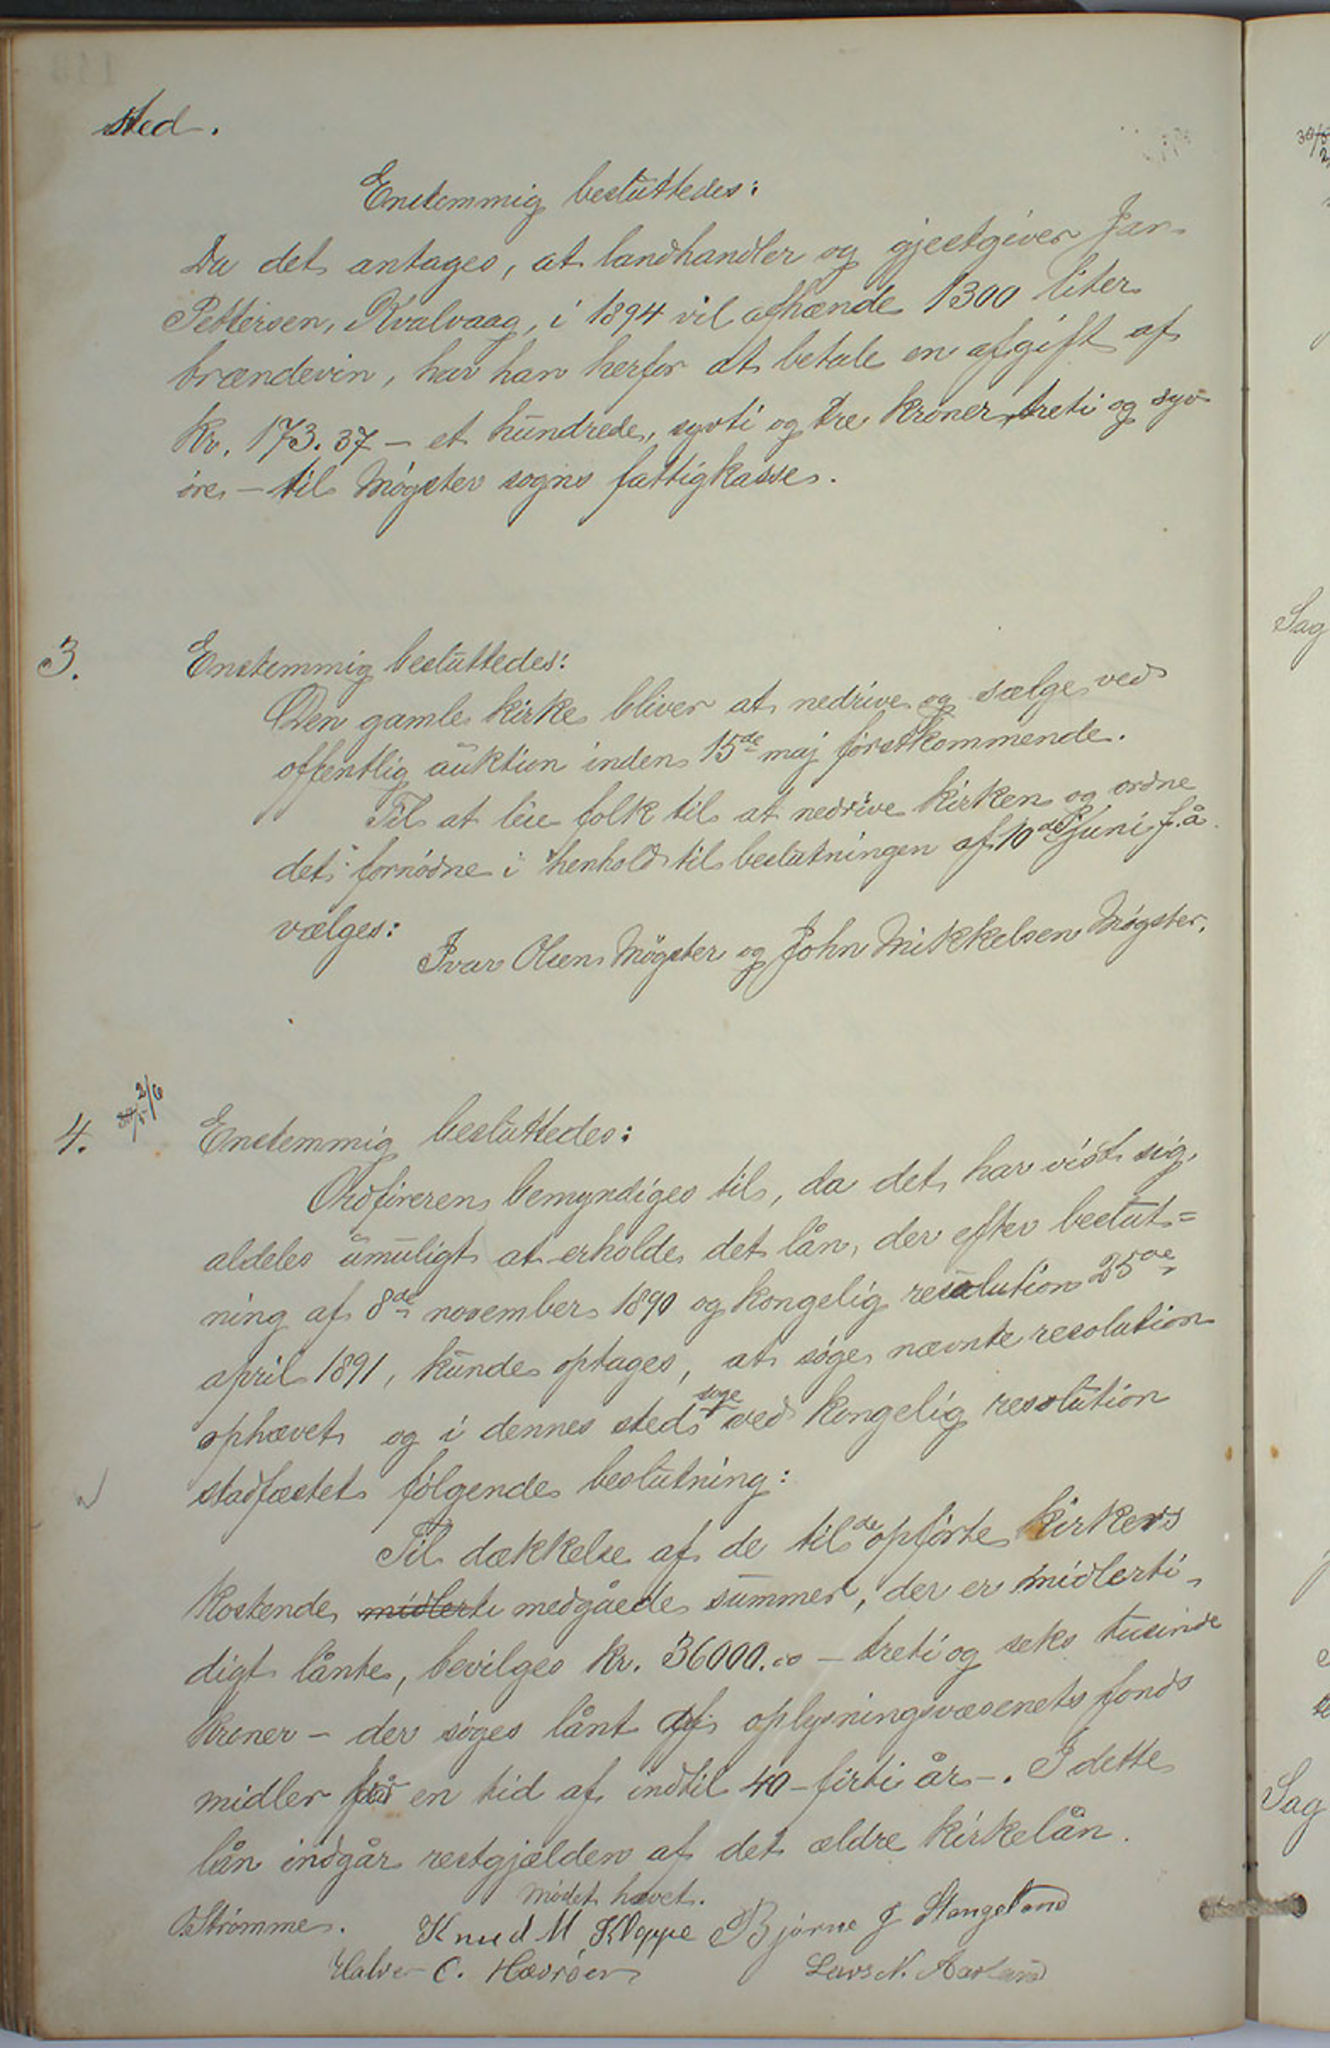 sted.
Enstemmig besluttedes:
Da det antages, at landhandler og gjestgiver Jan
Pettersen, Kvalvaag, i 1894 vil afhænde 1300 liter
brændevin, har han herfor at betale en afgift af
Kr. 173.37 – et hundrede, sytti og tre kroner treti og syv
øre – til Møgster sogns fattigkasse.
3. Enstemmig besluttedes:
Den gamle kirke bliver at nedrive og sælge ved
offentlig auktion inden 15de maj førstkommende.
Til at leie folk til at nedrive kirken og ordne
det fornødne i henhold til beslutningen af 10de Juni f.å.
vælges:
Ivar Olsen Møgster og John Mikkelsen Møgster.
2/6
4. Enstemmig besluttedes:
Ordføreren bemyndiges til, da det har vist sig
aldeles umuligt at erholde det lån, der efter beslut=
ning af 8de november 1890 og kongelig resolution 25de
april 1891, kunde optages, at søge nævnte resolution
ophævet og i dennes sted søge ved kongelig resolution
stadfæstet følgende beslutning:
Til dækkelse af de til de opførte kirkers
kostende midlerti medgåede summer, der er midlerti-
digt lånte, bevilges kr. 36000.00 – treti og seks tusinde
kroner – der søges lånt af oplysningsvæsenets fonds
midler for en tid af indtil 40 – firti år –. I dette
lån indgår restgjælden af det ældre kirkelån.
Mødet hævet.
OStrømme. Knud M Kleppe Bjørne J Stangeland
Halvor C. Hevrøen Lars N. Aarland
Sag
Sag